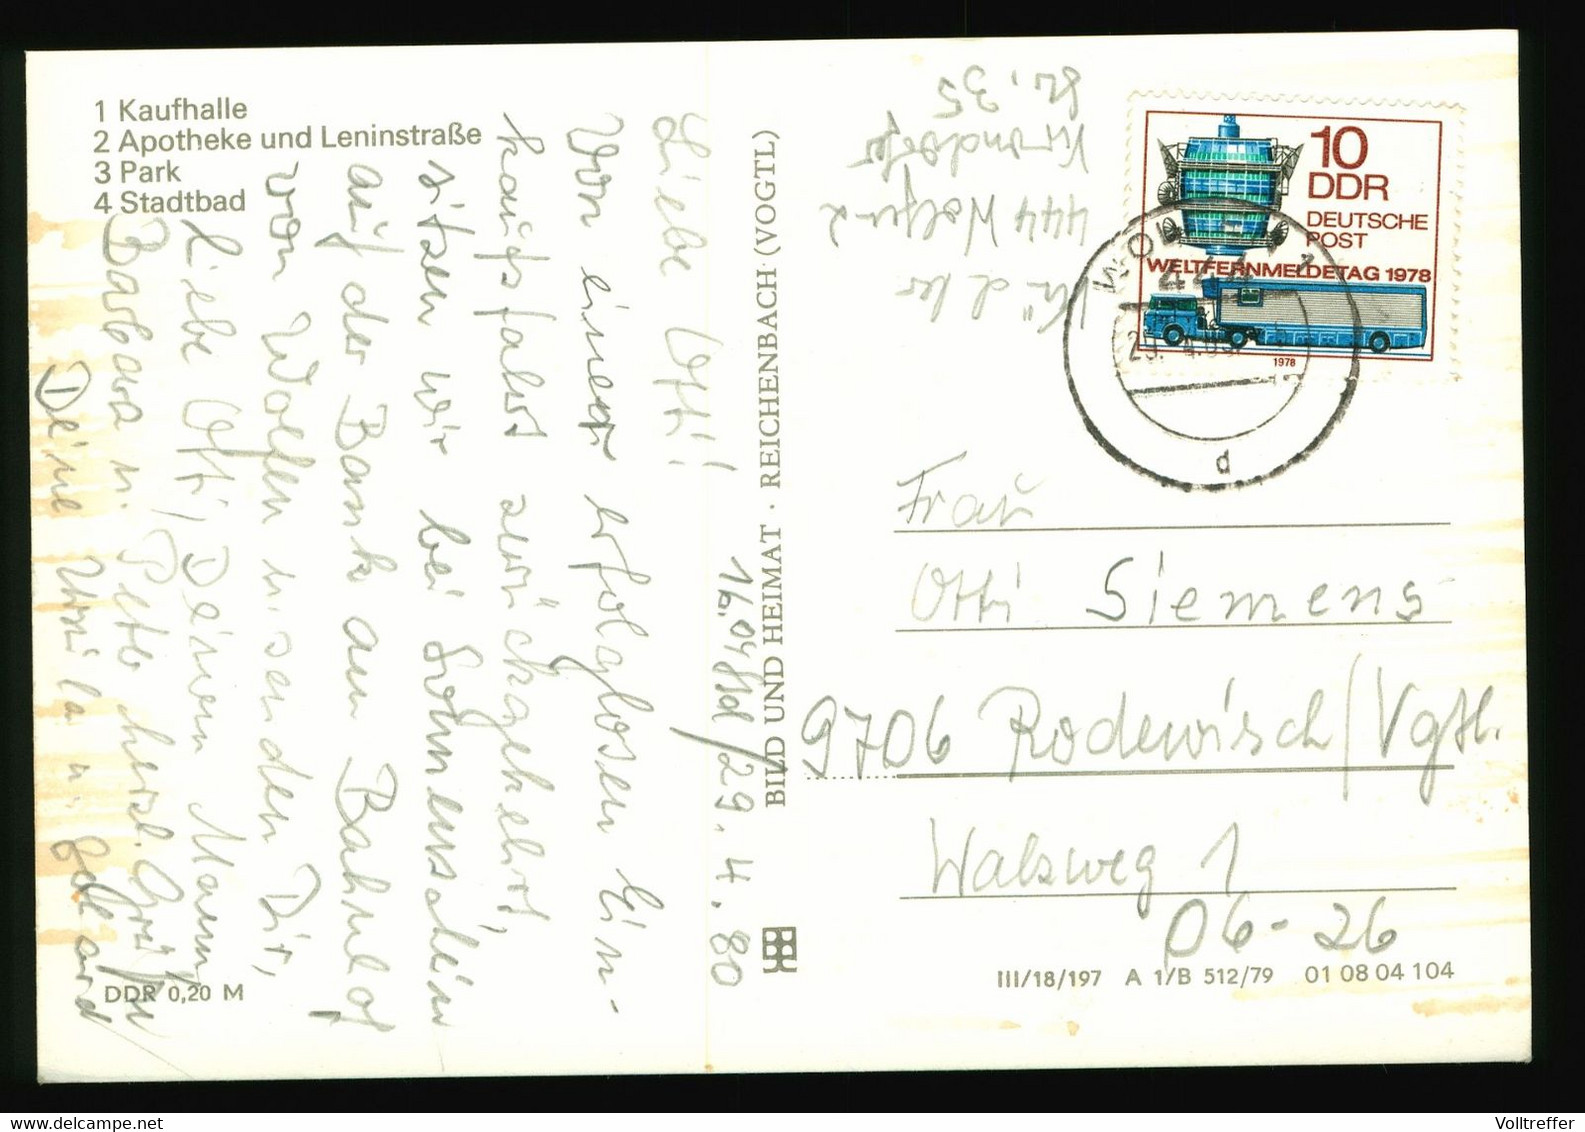 1 Kaufhalle
2 Apotheke und Leninstraße
3 Park
4 Stadtbad
16.04 /29.4.80
Liebe Otti!
Von einer erfolglosen Ein-
kaufsfahrt zurückgekehrt,
sitzen wir bei Sonnenschein
auf der Bank am Bahnhof
von Wolfen u. senden Dir,
liebe Otti, Deinem Mann,
Barbara u. Peter herzl. Grüße
Deine Ursula u. Gerhard
DDR 0,20 M
BILD UND HEIMAT · REICHENBACH (VOGTL)
444 Wolfen 2
Krondorfer
Str. 35
10
DDR
DEUTSCHE
POST
WELTFERNMELDETAG 1978
1978
WOLFEN 1
444
d
Frau
Otti Siemens
9706 Rodewisch/Vgtl.
Walzweg 1
06-26
III/18/197 A 1/B 512/79 01 08 04 104
Volltreffer